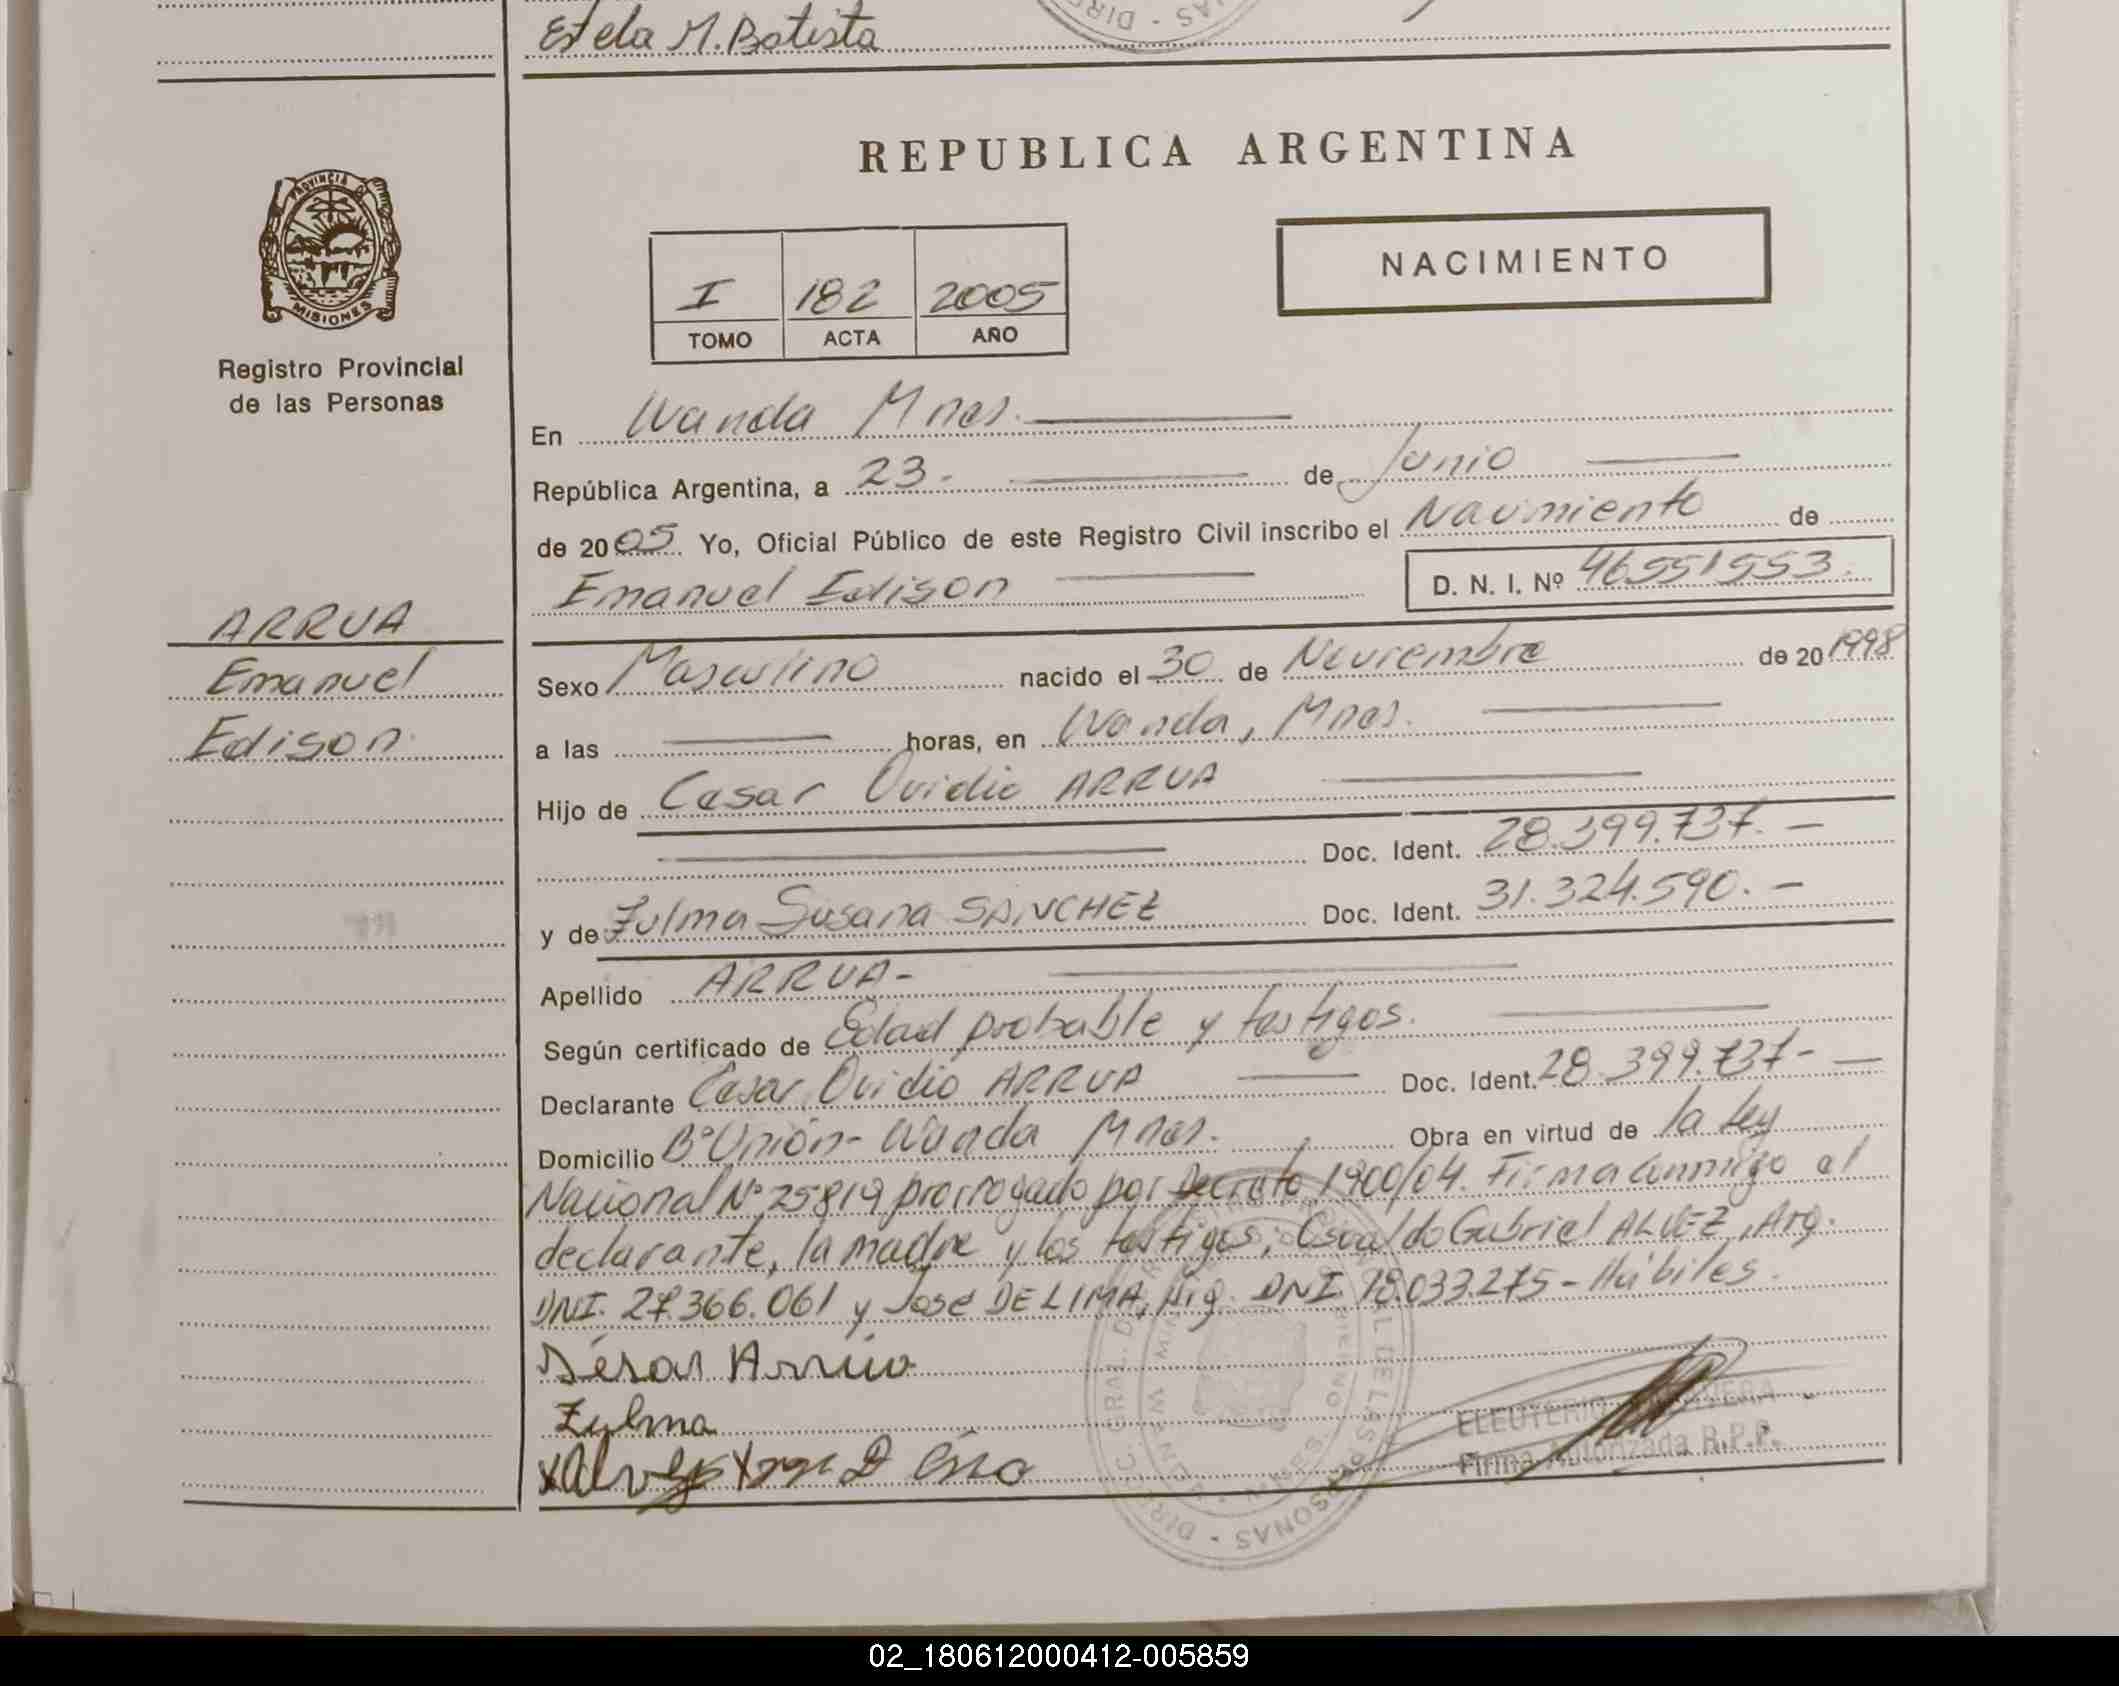 Estela M. Batista
REPUBLICA ARGENTINA
PROVINCIA DE
MISIONES
Registro Provincial
de las Personas
NACIMIENTO
I 182 2005
TOMO ACTA AÑO
En Wanda Mnes.
República Argentina, a 23. de Junio
de 2005 Yo, Oficial Público de este Registro Civil inscribo el Nacimiento de
Emanuel Edison D. N. I. Nº 46551553.
ARRUA
Emanuel
Edison
Sexo Masculino nacido el 30 de Noviembre de 20 1998
a las horas, en Wanda, Mnes.
Hijo de Cesar Ovidio ARRUA
Doc. Ident. 28.399.737.-
y de Zulma Susana SANCHEZ Doc. Ident. 31.324.590.-
Apellido ARRUA-
Según certificado de Edad probable y testigos.
Declarante Cesar Ovidio ARRUA Doc. Ident. 28.399.737-
Domicilio Bº Unión- Wanda Mnes. Obra en virtud de la ley
Nacional Nº 25819 prorrogado por Decreto 1900/04. Firma conmigo el
declarante, la madre y los testigos; Osvaldo Gabriel ALVEZ, Arg.
DNI. 27.366.061 y José DE LIMA, Arg. DNI. 18.033.275- Hábiles.
Zulma
ELEUTERIO
Firma Autorizada R.P.P.
02_180612000412-005859